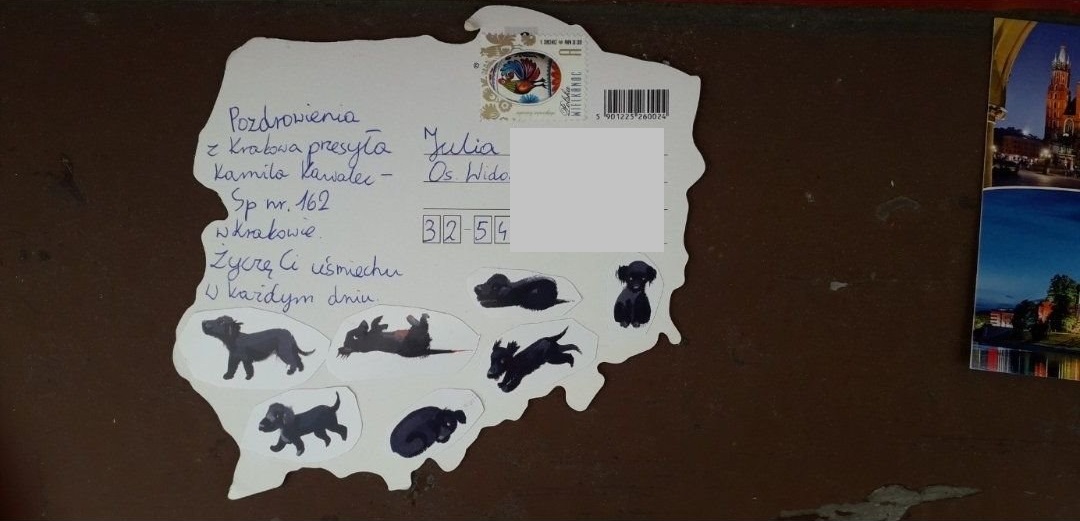 Pozdrowienia
z Krakowa przesyła
Kamila Kawalec -
Sp nr. 162
w Krakowie.
Życzę Ci uśmiechu
w każdym dniu.
Polska
WIELKANOC
A
Julia
Os. Wido
32-54
5 901225 260024